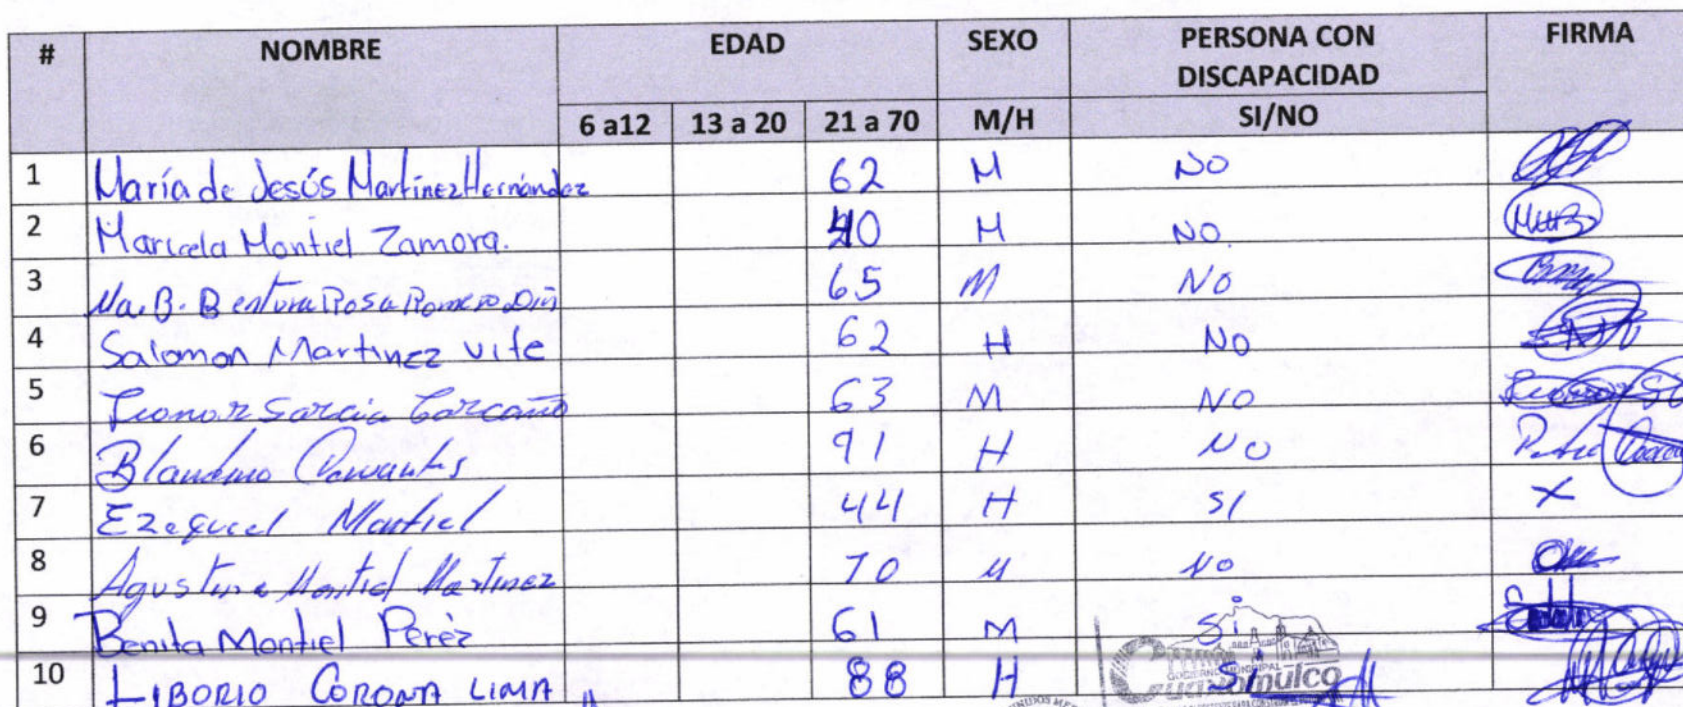 # NOMBRE EDAD SEXO PERSONA CON DISCAPACIDAD FIRMA
6 a12 13 a 20 21 a 70 M/H SI/NO
1 María de Jesús Martínez Hernández 62 M NO
2 Maricela Montiel Zamora. 40 M NO.
3 Ma. B. Bentura Rosa Romero 65 M NO
4 Salomon Martinez vite 62 H NO
5 Leonor Garcia Carcaño 63 M NO
6 Blandino Cervantes 91 H NO
7 Ezequiel Montiel 44 H SI X
8 Agustina Montiel Martinez 70 M NO
9 Benita Montiel Peréz 61 M Si
10 LIBORIO CORONA LIMA 88 H Si